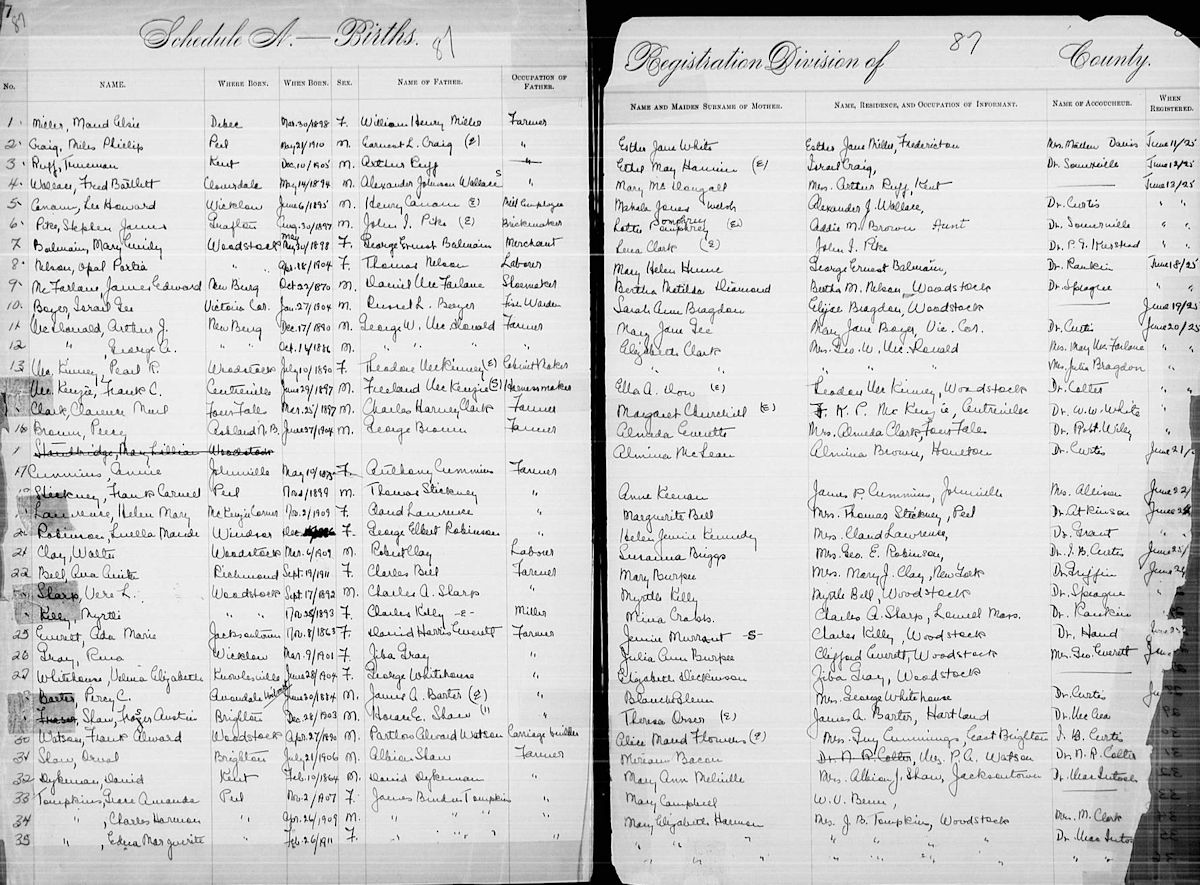 7
87
Schedule A. — Births.
87
No. NAME. WHERE BORN. WHEN BORN. SEX. NAME OF FATHER. OCCUPATION OF FATHER.
1 Miller, Maud Elsie Debec Mar. 30/1898 F. William Henry Miller Farmer
2 Craig, Miles Phillip Peel May 21/1910 M. Earnest L. Craig (E) "
3 Ruff, Trueman Kent Dec. 10/1905 M. Arthur Ruff
4 Wallace, Fred Bartlett May 14/1894 M. Alexander Johnson Wallace "
5 Lee Howard Wicklow June 6/1895 M. Henry (E) Employee
6 Pike, Stephen James Grafton Aug. 30/1897 M. John I. Pike (E) Brickmaker
7 Balmain, Mary Emily Woodstock May 30/1898 F. George Ernest Balmain Merchant
8 Nelson, Opal Portia " " Apr. 18/1904 F. Thomas Nelson Laborer
9 McFarlane, James Edward New Burg Oct 22/1870 M. Daniel McFarlane Shoemaker
10 Boyer, Israel Lee Victoria Cor. Jan. 27/1904 M. Russel L. Boyer Fire Warden
11 McDonald, Arthur J. New Burg Dec. 17/1890 M. George W. McDonald Farmer
12 " , George A. " Oct. 16/1886 M. " " " "
13 McKinney, Pearl R. Woodstock July 10/1890 F. Theodore McKinney (E) Cabinet Maker
McKenzie, Frank C. Centreville June 29/1897 M. Freeland McKenzie (E) Harnessmaker
Clark, Clarence Four Falls Mar. 25/1897 M. Charles Harvey Clark Farmer
16 Brown, Percy Ashland N.B. June 27/1904 M. George Brown Farmer
1 Standridge, May Lillian Woodstock
17 Cummins, Annie Johnville May 19/ F. Anthony Cummins Farmer
Stickney, Frank Carvell Peel Nov. /1899 M. Thomas Stickney "
Lawrence, Helen Mary McKenzie Corner Nov. 2/1909 M. Claud Lawrence "
20 Robinson, Luella Maude Windsor Oct. F. George Elbert Robinson "
21 Clay, Walter Woodstock Mar. 4/1909 M. Robert Clay Labour
22 Bell, Ava Anita Richmond Sept. 19/1911 F. Charles Bell Farmer
Sharp, Vere L. Woodstock Sept. 17/1892 M. Charles A. Sharp "
Kelly, Myrtle " " Nov. 28/1893 F. Charles Kelly -e- Miller
25 Everett, Ada Marie Jacksontown Nov. 8/1863 F. David Harris Everett Farmer
26 Gray, Rena Wicklow Mar. 9/1901 F. Ziba Gray "
27 Whitehouse, Velma Elizabeth Knowlesville June 28/1904 F. George Whitehouse "
Barter, Percy C. Avondale June 20/1884 M. James A. Barter (E) "
Fraser, Shaw, Frazer Austin Brighton Dec. 28/1903 M. Horace E. Shaw "
30 Watson, Frank Alward Woodstock Apr. 27/1890 M. Partlow Alward Watson Carriage builder
31 Shaw, Orval Brighton July 21/1906 M. Albion Shaw Farmer
32 Dykeman, David Kent Feb. 19/1864 M. David Dykeman "
33 Tompkins, Grace Amanda Peel Nov. 2/1907 F. James Tompkins "
34 " , Charles Harmon " Apr. 26/1909 M. " " "
35 " , Edna Marguerite " Feb. 26/1911 F. " " " "
Registration Division of 87 County.
NAME AND MAIDEN SURNAME OF MOTHER. NAME, RESIDENCE, AND OCCUPATION OF INFORMANT. NAME OF ACCOUCHEUR. WHEN REGISTERED.
Esther Jane White Esther Jane Miller, Fredericton Mrs. Davis June 11/25
Ethel May (E) Israel Craig, Dr. Somerville June 12/25
Mary McDougall Mrs. Arthur Ruff, Kent June 13/25
Jones Alexander J. Wallace, Dr. Curtis " "
Lottie Pomphrey (E) Addie M. Brown Aunt Dr. Somerville " "
Lena Clark (E) John I. Pike Dr. P. T. Kierstead " "
Mary Helen George Ernest Balmain, Dr. Rankin June 18/25
Bertha Matilda Diamond Bertha M. Nelson, Woodstock Dr. Sprague "
Sarah Ann Bragdon Elijah Bragdon, Woodstock June 19/25
Mary Jane Lee Mary Jane Boyer, Vic. Cor. Dr. Curtis June 20/25
Elizabeth Clark Mrs. Geo. W. McDonald Mrs. May McFarlane "
" " " " Mrs. Julia Bragdon "
Ella A. Dow (E) Theodore McKinney, Woodstock Dr. Colter "
Margaret Churchill (E) K. P. McKenzie, Centreville Dr. W. W. White "
Almeda Everette Mrs. Almeda Clark, Four Falls Dr. Robt. Wiley "
Almina McLean Almina Brown, Houlton Dr. Curtis June 21/
Anne Keenan James P. Cummins, Johnville Mrs. Allison June 22/
Marguerite Bell Mrs. Thomas Stickney, Peel Dr. Atkinson June 2
Helen Jennie Kennedy Mrs. Claud Lawrence, Dr. Grant "
Susanna Briggs Mrs. Geo. E. Robinson, Dr. I. B. Curtis June 25/
Mary Burpee Mrs. Mary J. Clay, New York Dr. Griffin June 26
Myrtle Kelly Myrtle Bell, Woodstock Dr. Sprague "
Mina Crabb. Charles A. Sharp, Mass. Dr. Rankin "
Jennie -S- Charles Kelly, Woodstock Dr. Hand June
Julia Ann Burpee Clifford Everett, Woodstock Mrs. Geo. Everett June
Elizabeth Ziba Gray, Woodstock
Blanch Mrs. George Whitehouse Dr. Curtis Ju
Theresa Orser (E) James A. Barter, Hartland
Alice Maud Flowers (E) Mrs. Guy Cummings, East Brighton I. B. Curtis
Miriam Bacon Dr. N. R. Colter, Mrs. P. A. Watson Dr. N. R. Colter
Mary Ann Melville Mrs. Albion J. Shaw, Jacksontown Dr. MacIntosh
Mary Campbell W. U.
Mary Elizabeth Harmon Mrs. J. B. Tompkins, Woodstock M. Clark
" " " " " " Dr. MacIntosh
" " " " " " " "